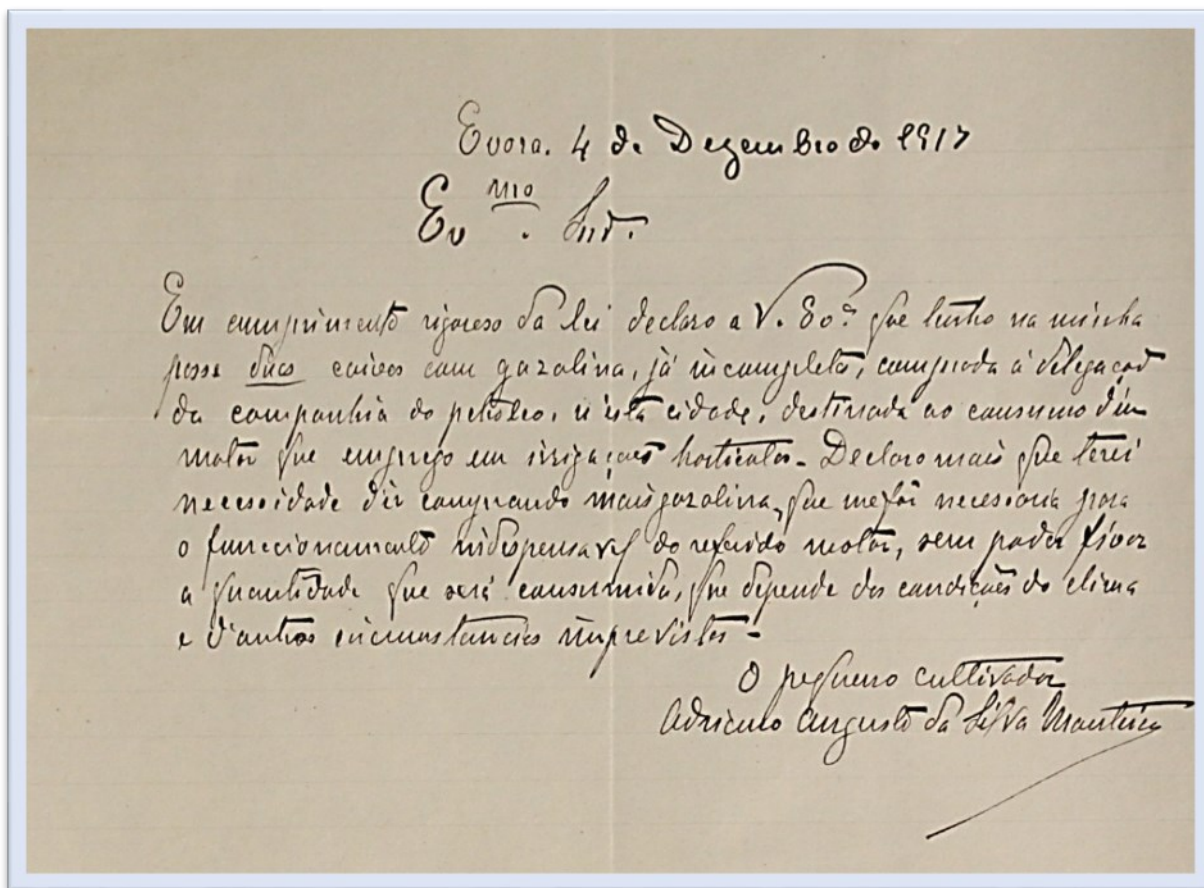 Evora. 4 de Dezembro de 1917
Ex mo. Snr.
Em cumprimento rigoroso da lei declaro a V. Exª. que tenho na minha
posse duas caixas com gazolina, já incompletas, comprada á delegação
da companhia do petroleo, n'esta cidade, destinada ao consumo d'um
motor que emprego em irrigações horticolas - Declaro mais que terei
necessidade d'ir comprando mais gazolina, que me fôr necessaria para
o funccionamento indispensavel do referido motor, sem poder fixar
a quantidade que será consumida, que depende das condições do clima
e d'outras circumstancias imprevistas -
O pequeno cultivador
Adriano Augusto da Silva Monteiro